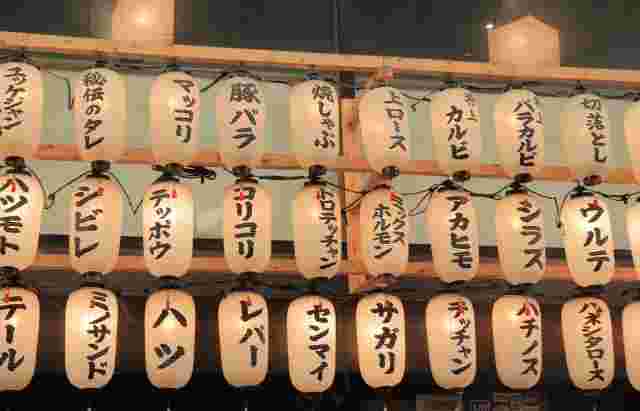 ユッケジャン
秘伝のタレ
マッコリ
豚バラ
焼しゃぶ
上ロース
上カルビ
バラカルビ
切落とし
ハツモト
シビレ
テッポウ
コリコリ
トロテッチャン
ミックス
ホルモン
アカヒモ
シラス
ウルテ
テール
ミノサンド
ハツ
レバー
センマイ
サガリ
テッチャン
ハチノス
ハネシタロース